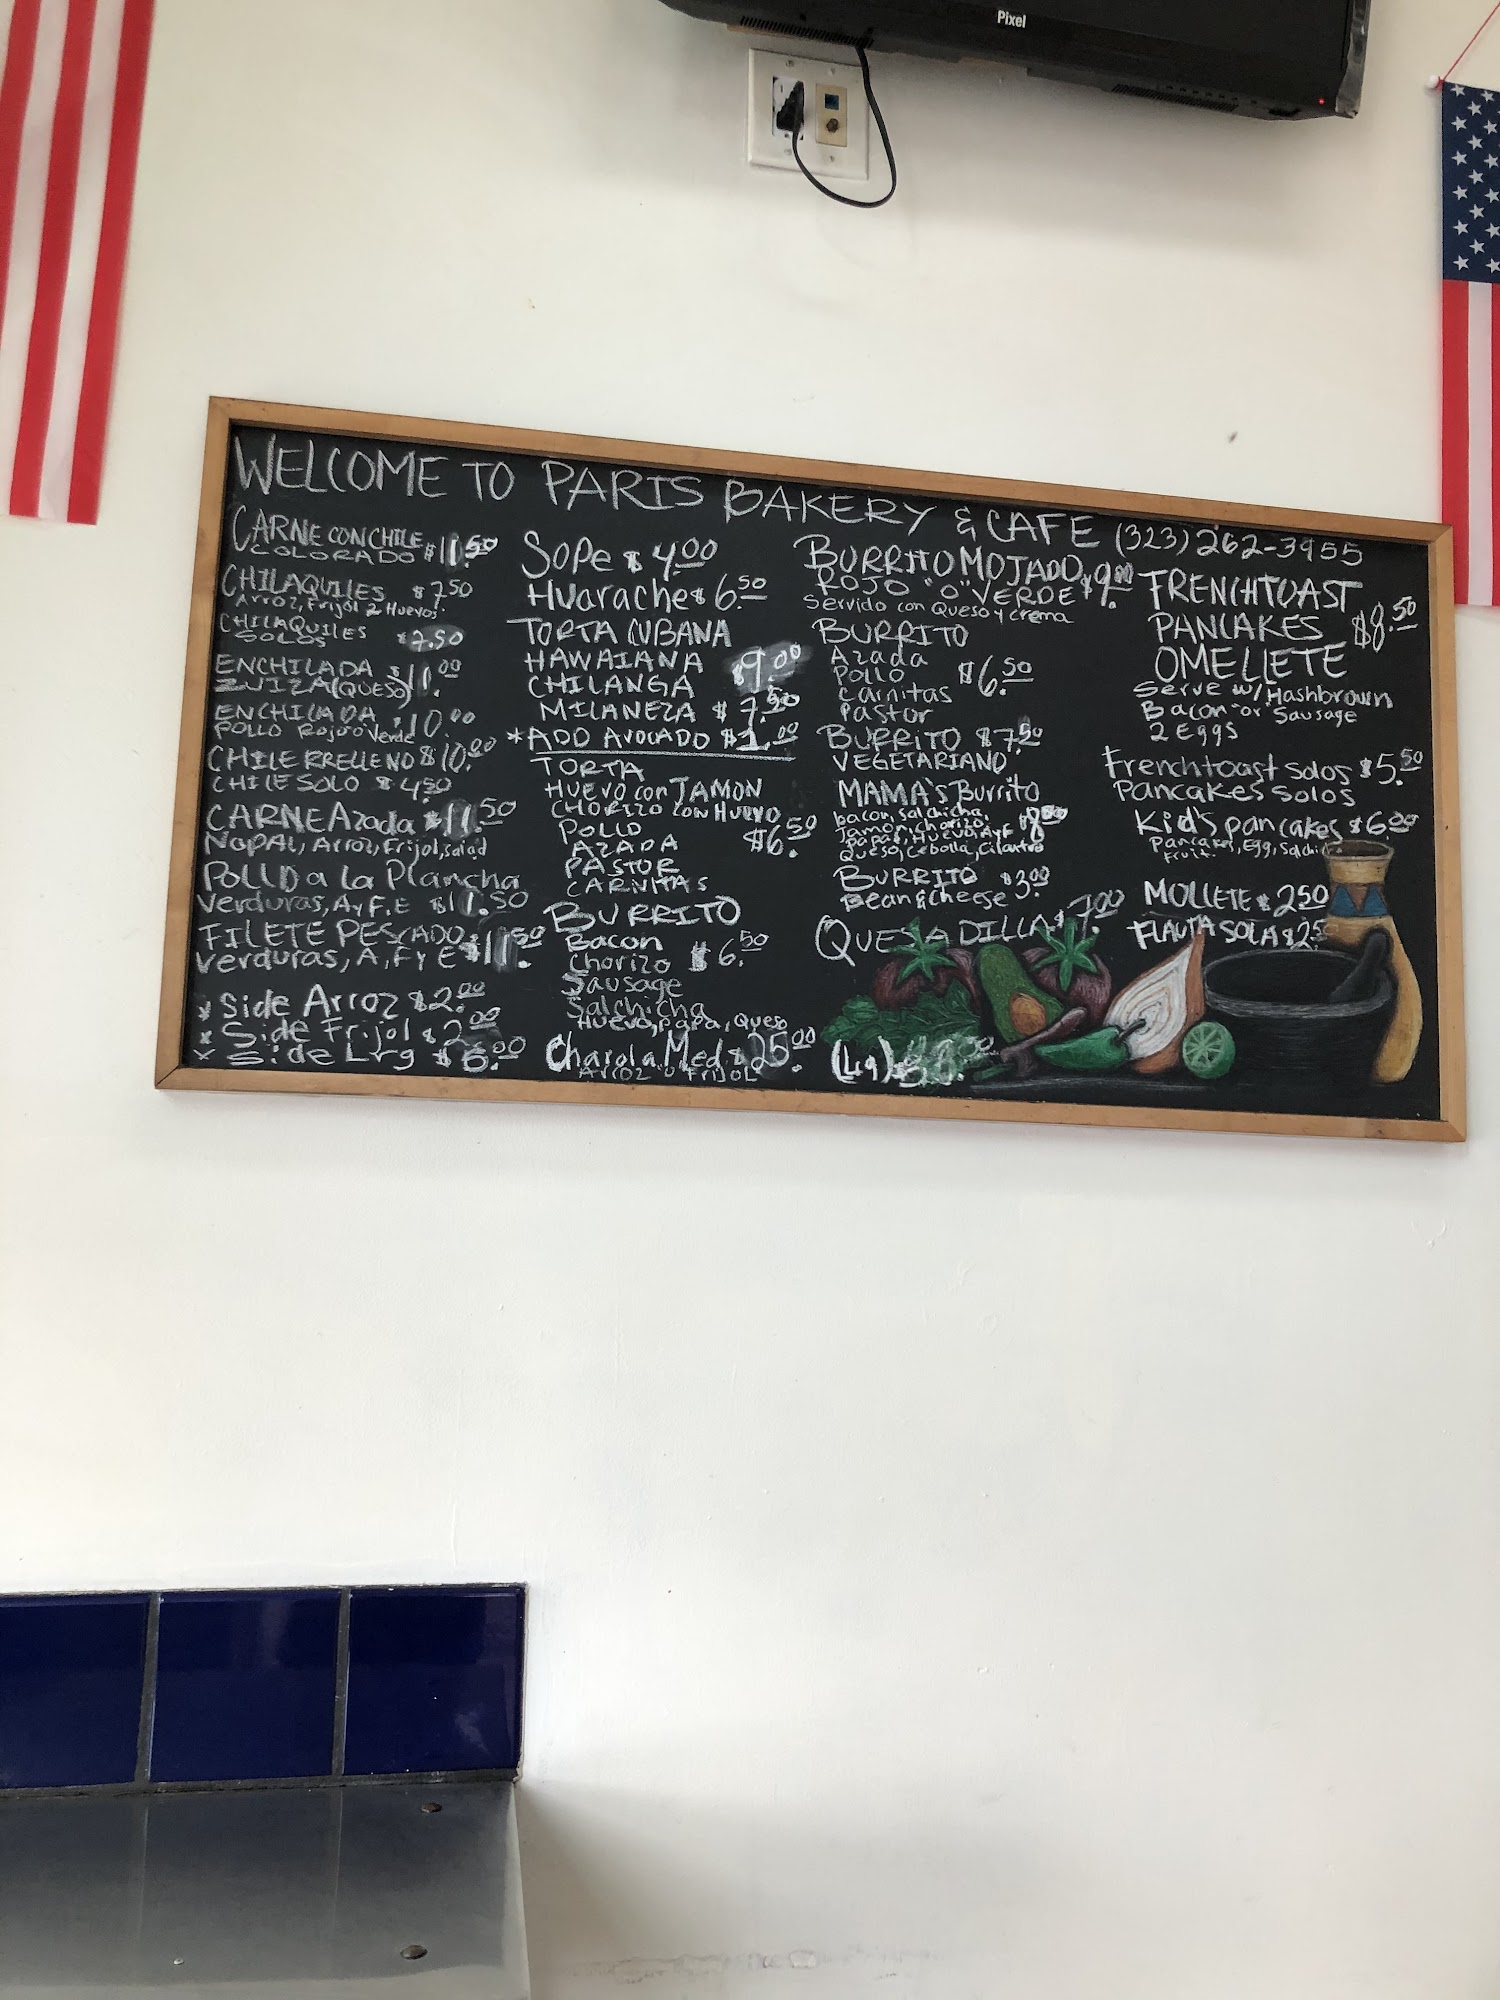 Pixel
WELCOME TO PARIS BAKERY & CAFE (323) 262-3955
CARNE CON CHILE
COLORADO $11.50
CHILAQUILES $7.50
Arroz, Frijol 2 Huevos
CHILAQUILES
SOLOS $7.50
ENCHILADA
ZUIZA (QUESO) $11.00
ENCHILADA
POLLO Rojo o Verde $10.00
CHILE RRELLENO $10.00
CHILE SOLO $4.50
CARNE Azada $11.50
Nopal, Arroz, Frijol, salad
POLLO a La Plancha
Verduras, AyF, E $11.50
FILETE PESCADO
Verduras, A, F y E $11.50
* Side Arroz $2.00
* Side Frijol $2.00
* Side Lrg
SOPE $4.00
Huarache $6.50
TORTA CUBANA
HAWAIANA
CHILANGA $9.00
MILANEZA $7.50
*ADD AVOCADO $1.00
TORTA
HUEVO con JAMON
CHORIZO con HUEVO
POLLO
AZADA
PASTOR
CARNITAS
$6.50
BURRITO
Bacon
Chorizo
Sausage
Salchicha
$6.50
Huevo, papa, Queso
Charola Med $25.00
Arroz o Frijol
BURRITO MOJADO
ROJO "O" VERDE $9.00
Servido con Queso y crema
BURRITO
Azada
Pollo
Carnitas
Pastor
$6.50
BURRITO $7.50
VEGETARIANO
MAMA's Burrito
bacon, Salchicha,
Jamon, chorizo,
papas, Huevo, AyF
Queso, Cebolla, Cilantro
BURRITO $3.00
Bean & cheese
QUESADILLA $7.00
(Lg)
FRENCHTOAST
PANCAKES $8.50
OMELLETE
Serve w/ Hashbrown
Bacon or Sausage
2 Eggs
Frenchtoast Solos $5.50
Pancakes Solos
Kid's pancakes $6.00
Pancakes, Egg, Salchicha
Fruit
MOLLETE $2.50
FLAUTA SOLA $2.50